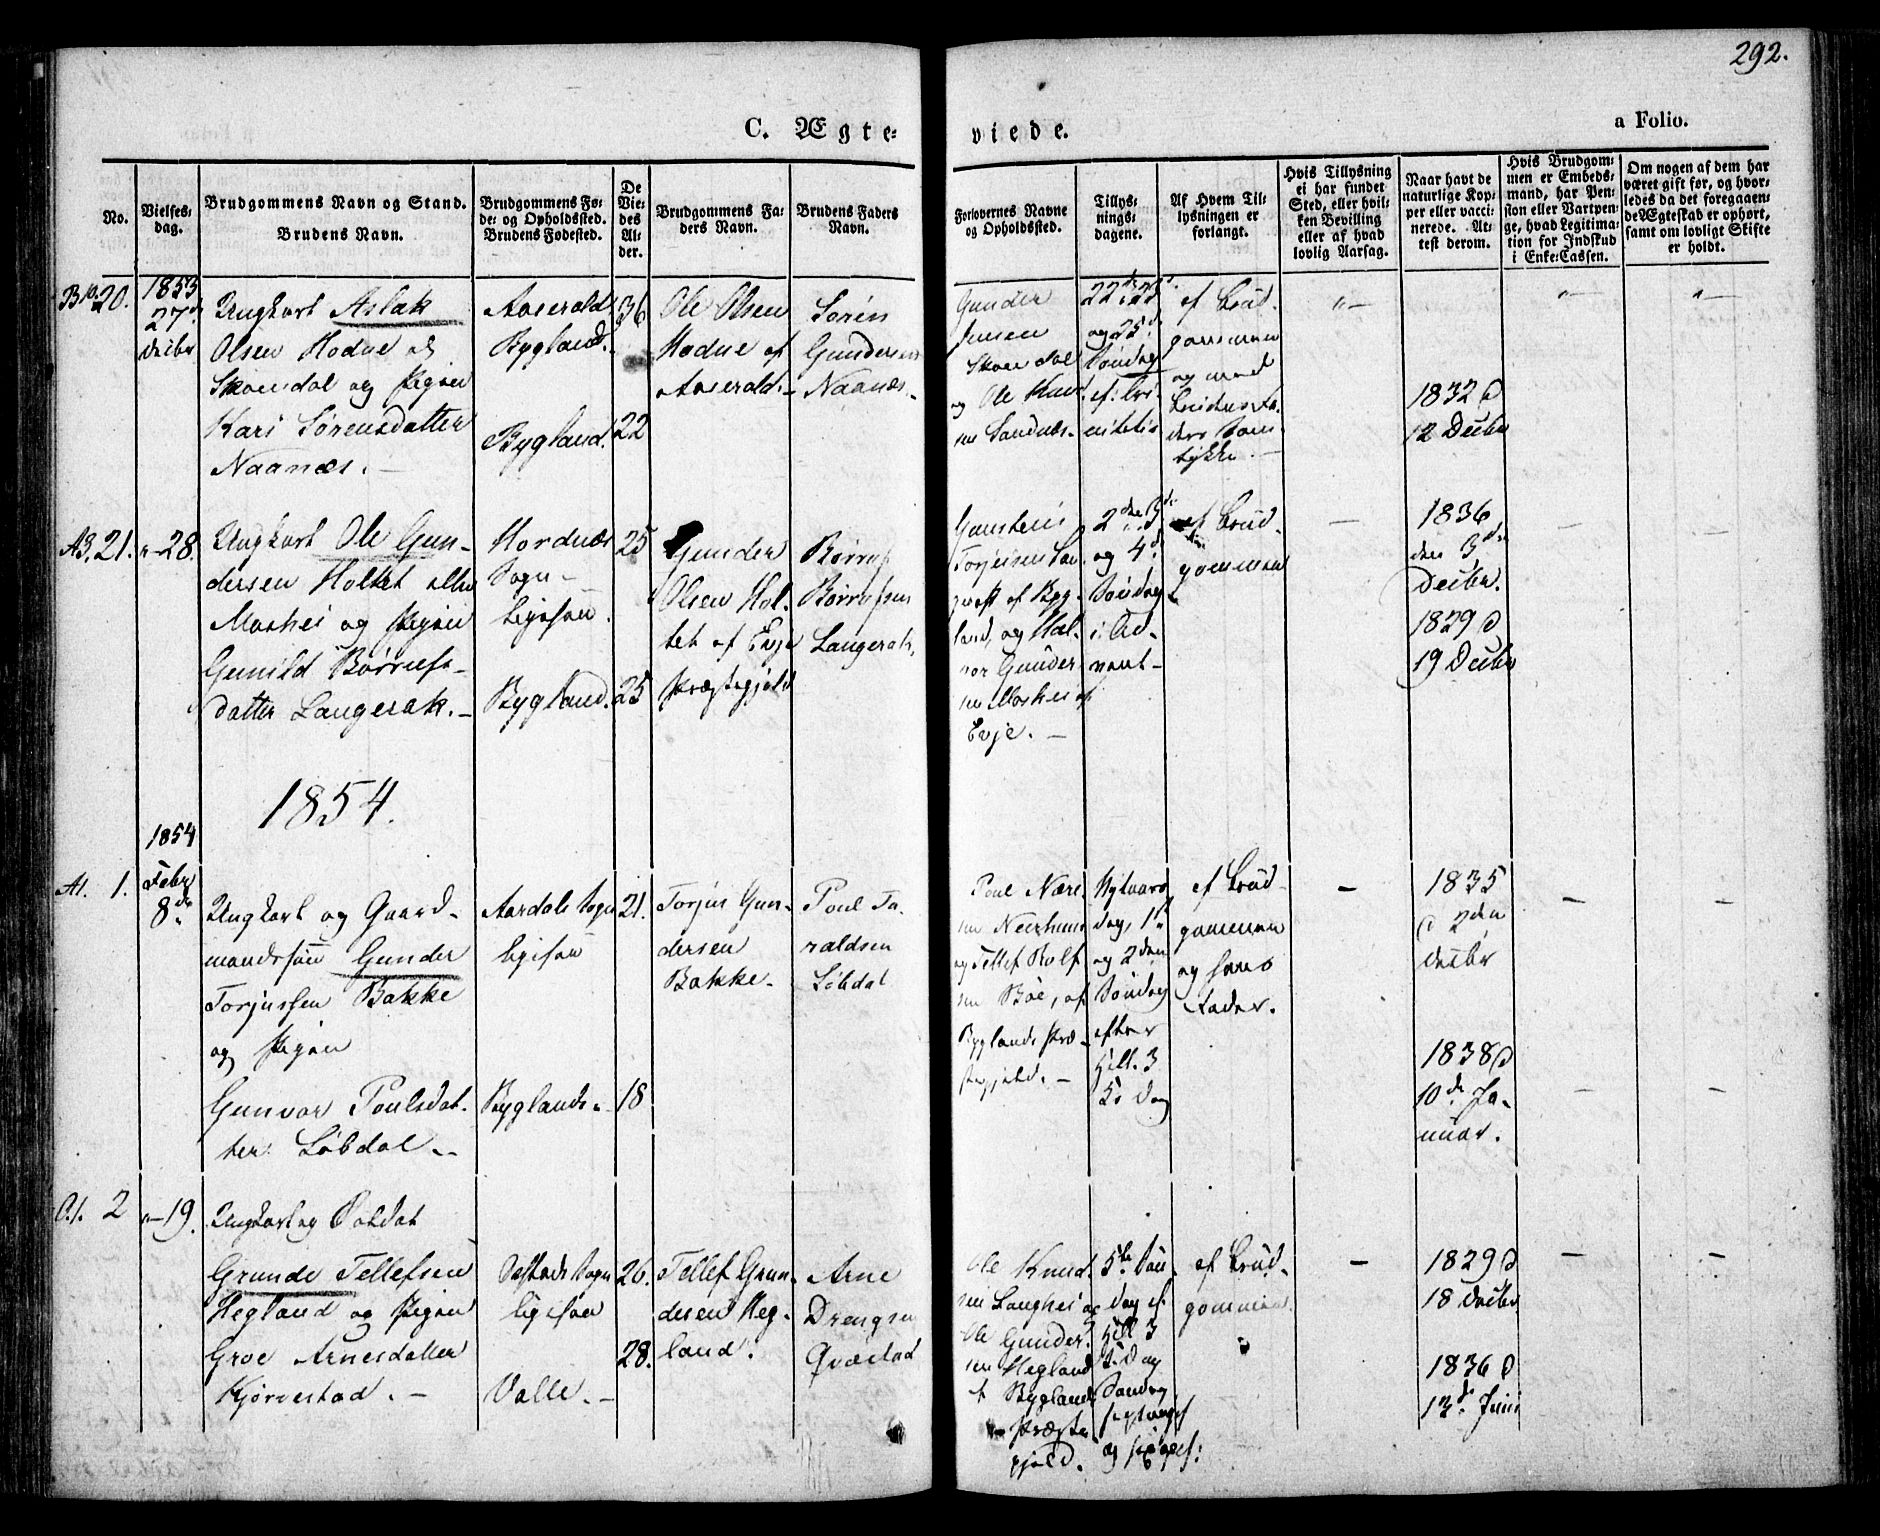 292.
C. Ægte-
viede.
a Folio.
No.
Vielses-
dag.
Brudgommens Navn og Stand.
Brudens Navn.
Brudgommens Fø-
de- og Opholdssted.
Brudens Fødested.
De
Vie-
des
Al-
der.
Brudgommens Fa-
ders Navn.
Brudens Faders
Navn.
Forlovernes Navne
og Opholdssted.
Tillys-
nings-
dagene.
Af Hvem Til-
lysningen er
forlangt.
Hvis Tillysning
ei har fundet
Sted, eller hvil-
ken Bevilling
eller af hvad
lovlig Aarsag.
Naar havt de
naturlige Kop-
per eller vacci-
nerede. At-
test derom.
Hvis Brudgom-
men er Embeds-
mand, har Pen-
sion eller Vartpen-
ge, hvad Legitima-
tion for Indskud
i Enke-Cassen.
Om nogen af dem har
været gift før, og hvor-
ledes da det foregaaen-
de Ægteskab er ophørt,
samt om lovligt Skifte
er holdt.
B10. 20.
1853
27d
Decbr
Ungkarl Aslak
Olsen Hodne af
Skomedal og Pigen
Kari Sørensdatter
Naanæs. -
Aaserald
Bygland.
Bygland.
36
22
Ole Olsen
Hodne af
Aaserald. -
Søren
Gundersen
Naanæs. -
Gunder
Jensen
Skomedal
og Ole Knud-
sen Sandnæs.
22d, 23d
og 25d
Søndag
ef: Tri-
nitatis
ef Brud-
gommen
og med
Brudens Fa-
ders Sam-
tykke. -
1832 d
12 Decbr
A3. 21.
"-28.
Ungkarl Ole Gun-
dersen Holtet eller
Moshei og Pigen
Gunild Børrufs-
datter Langerak. -
Hordnæs
Sogn-
ligesaa.
Bygland.
25
25
Gunder
Olsen Hol-
tet af Evje
Præstegjeld
Børruf
Børrufsen
Langerak.
Torjusen
af Byg-
land, og Hal-
vor Gunder-
sen Moshei af
Evje. -
2den, 3d
og 4d
Søndag
i Ad-
vent -
ef Brud-
gommen
1836
den 3d
Decbr.
1829 d
19 Decbr
1854.
1854
Febr
8de
A1. 1.
Ungkarl og Gaard-
mandssøn Gunder
Torjussen Bakke
og Pigen
Gunvor Poulsdat-
ter Løbdal. -
Aardals Sogn
ligesaa
Byglands.
21.
18
Torjus Gun-
dersen
Bakke.
Poul Ta-
raldsen
Løbdal
Poul
og Tellef Rolf-
sen Bøe, af
Byglands Præ-
stegjeld. -
Nytaars-
dag, 1ste
og 2den
Søndag
efter
Hell. 3
K. Dag
ef Brud-
gommen
og hans
Fader.
1835
d 2den
Decbr
1838 d
10de Ja-
nuar.
A1. 2
"-19.
Ungkarl og Soldat
Grunde Tellefsen
Hegland og Pigen
Groe Arnesdatter
Kjørrestad. -
Sogn
ligesaa
Valle. -
26.
28.
Tellef Grun-
desen Heg-
land.
Arne
Drengsen
Qvæstad
Ole Knud-
sen Langhei og
Ole Gunder-
sen Hegland
Byglands
Præste-
gjeld.
5te Søn-
dag ef.
Hell 3
K. Dag
Søndag
ef Brud-
gommen.
1829 d
18 Decbr
1836 d
13de Juni